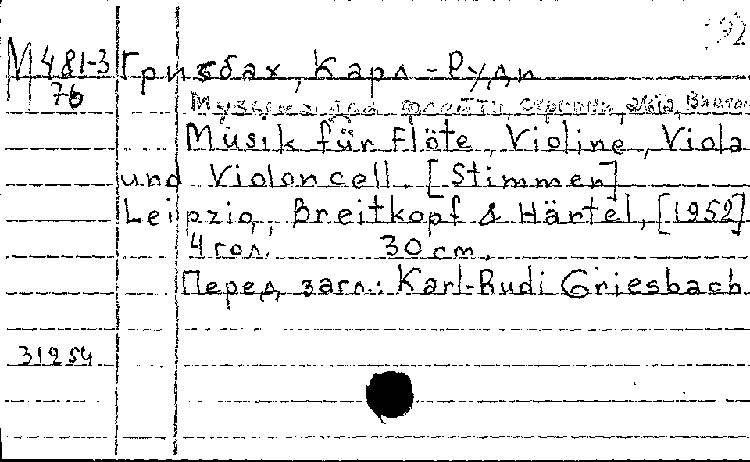 М 481-3 Грисбах, Карл-Руди
76
Музыка для флейти, скрипки, альта,
Musik für Flöte, Violine, Viola
und Violoncell. [Stimmen]
Leipzig, Breitkopf & Härtel, [1952]
4 гол. 30 cm.
Перед загл.: Karl-Rudi Griesbach
31254